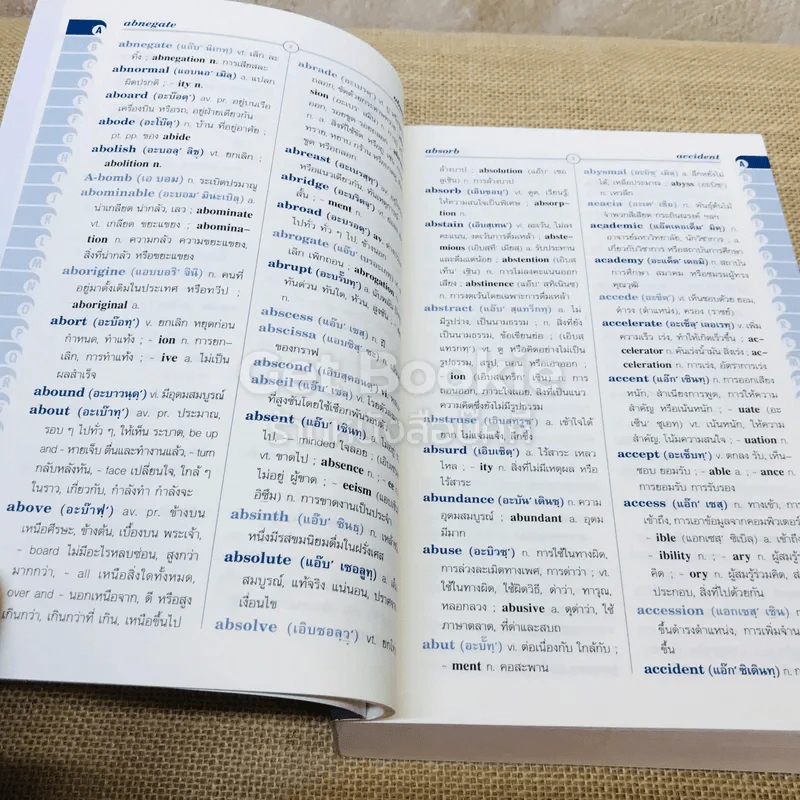 abnegate
A
2
abnegate (แอ๊บ' นิเกท) vt. เลิก ละ
ทิ้ง ; abnegation n. การเสียสละ
abnormal (แอบนอ' เมิล) a. แปลก
ผิดปรกติ ; - ity n.
aboard (อะบ๊อด') av. pr. อยู่บนเรือ
เครื่องบิน หรือรถ, อยู่ฝ่ายเดียวกัน
abode (อะโบ๊ด') n. บ้าน ที่อยู่อาศัย ;
pt. pp. ของ abide
abolish (อะบอล' ลิช) vt. ยกเลิก ;
abolition n.
A-bomb (เอ บอม) n. ระเบิดปรมาณู
abominable (อะบอม' มิเนะเบิล) a.
น่าเกลียด น่ากลัว, เลว ; abominate
vt. เกลียด ขยะแขยง ; abomina-
tion n. ความกลัว ความขยะแขยง,
สิ่งที่น่ากลัว หรือขยะแขยง
aborigine (แอบบอริ' จินี) n. คนที่
อยู่มาตั้งเดิมในประเทศ หรือทวีป ;
aboriginal a.
abort (อะบ๊อท') v. ยกเลิก หยุดก่อน
กำหนด, ทำแท้ง ; - ion n. การยก-
เลิก, การทำแท้ง ; - ive a. ไม่เป็น
ผลสำเร็จ
abound (อะบาวนฺดฺ') vi. มีอุดมสมบูรณ์
about (อะเบ๊าทฺ') av. pr. ประมาณ,
รอบ ๆ ไปทั่ว ๆ, ให้เห็น ระบาด, be up
and - หายเจ็บ ตื่นและทำงานแล้ว, - turn
กลับหลังหัน, - face เปลี่ยนใจ, ใกล้ ๆ
ในราว, เกี่ยวกับ, กำลังทำ กำลังจะ
above (อะบ๊าฟฺ') av. pr. ข้างบน
เหนือศีรษะ, ข้างต้น, เบื้องบน พระเจ้า,
- board ไม่มีอะไรหลบซ่อน, สูงกว่า
มากกว่า, - all เหนือสิ่งใดทั้งหมด,
over and - นอกเหนือจาก, ดี หรือสูง
เกินกว่า, เกินกว่าที่ เกิน, เหนือขึ้นไป
abrade (อะบรา
ถลอก, ขัดด้วยกระดาษ
sion (อะเบร
ออก, รอยขูด รอยถลอก
n. a. สิ่งที่ใช้ขัด
ทราย, หยาบ
ขูด หรือถลอก
abreast (อะบรสทฺ')
หรือแนวเดียวกัน
abridge (อะบริดจฺ')
สั้น ; - ment n.
abroad (อะบรอด') av.
ไปทั่ว ทั่ว ๆ ไป, ข้างนอก
abrogate (แอ๊บ'
เลิก เพิกถอน ; abrogation
abrupt (อะบรั๊บทฺ') a.
ทันด่วน ทันใด, ห้วน, สูงชัน
n.
abscess (แอ๊บ' เซส) n. ฝี
abscissa (แอบซิส' ซะ)
ของกราฟ
abscond (เอิบสคอนดฺ')
abseil (แอ๊บ' เซล)
ที่สูงชันโดยใช้เชือก
absent (แอ๊บ' เซินทฺ) a.
ไป, - minded ใจลอย ;
vt. ขาดไป ; absence n.
ไม่อยู่ ผู้ขาด ; - eeism
อิซึม) n. การขาดงานเป็นประจำ
absinth (แอ๊บ' ซินธฺ) n.
หนึ่งมีรสขมนิยมดื่มในฝรั่งเศส
absolute (แอ๊บ' เซอลูทฺ) a.
สมบูรณ์, แท้จริง แน่นอน,
เงื่อนไข
absolve (เอิบซอลฺวฺ') vt.
absorb
3
accident
A
ล้างบาป) ; absolution (แอ๊บ' เซอ
ลูเชิน) n. การล้างบาป
absorb (เอิบซอบฺ') vt. ดูด, เรียนรู้,
ให้ความสนใจเป็นพิเศษ ; absorp-
tion n.
abstain (เอิบสเทน') vi. ละเว้น, ไม่ลง
คะแนน, งดเว้นการดื่มเหล้า ; abste-
mious (เอิบสที เมียส) a. รับประทาน
และดื่มแต่น้อย ; abstention (เอิบส
เท็น' เชิน) n. การไม่ลงคะแนนออก
เสียง ; abstinence (แอ๊บ' สทิเนินซฺ)
n. การงดเว้นโดยเฉพาะการดื่มเหล้า
abstract (แอ๊บ' สแทร็กทฺ) a.
ไม่มีรูปร่าง, เป็นนามธรรม ; n. สิ่งที่ยัง
เป็นนามธรรม, ข้อเขียนย่อ ; (เอิบส
แทรกทฺ') vt. ดู หรือคิดอย่างไม่เป็น
รูปธรรม, สรุป, ถอน หรือเอาออก ;
- ion (เอิบสแทร็ก เชิน) n. การ
ถอนออก, ภาวะใจลอย, สิ่งที่เป็นแนว
ความคิดซึ่งยังไม่มีรูปธรรม
abstruse (เอิบสทรูซ') a. เข้าใจได้
ยาก ไม่แจ่มแจ้ง, ลึกซึ้ง
absurd (เอิบเซิด') a. ไร้สาระ เหลว
ไหล ; - ity n. สิ่งที่ไม่มีเหตุผล หรือ
ไร้สาระ
abundance (อะบัน' เดินซฺ) n. ความ
อุดมสมบูรณ์ ; abundant a. อุดม
มีมาก
abuse (อะบิวซฺ') n. การใช้ในทางผิด,
การล่วงละเมิดทางเพศ, การด่าว่า ; vt.
ใช้ในทางผิด, ใช้ผิดวิธี, ด่าว่า, ทารุณ,
หลอกลวง ; abusive a. ดุด่าว่า, ใช้
ภาษาตลาด, ที่ด่าและสบถ
abut (อะบั๊ทฺ') vi. ต่อเนื่องกับ ใกล้กับ ;
- ment n. คอสะพาน
abysmal (อะบิซฺ' เมิล) a. ลึกหยั่งไม่
ได้, เหลือประมาณ ; abyss (อะบิซ')
n. เหวลึก
acacia (อะเค' เชีย) n. พันธุ์ต้นไม้
จำพวกสีเสียด กระถินณรงค์ ฯลฯ
academic (แอ๊คเคอเด๊ม' มิค) n.
อาจารย์มหาวิทยาลัย, นักวิชาการ ; a.
เกี่ยวกับวิชาการ หรือสถาบันการศึกษา
academy (อะแค๊ด' เดอมี) n. สถาบัน
การศึกษา สมาคม หรือชมรมผู้ทรง
คุณวุฒิ
accede (อะซีด') v. เห็นชอบด้วย ยอม,
ดำรง (ตำแหน่ง), ครอง (ราชย์)
accelerate (อะเซ็ล' เลอเรท) v. เพิ่ม
ความเร็ว เร่ง, ทำให้เกิดเร็วขึ้น ; ac-
celerator n. คันเร่งน้ำมัน สิ่งเร่ง ; ac-
celeration n. การเร่ง, อัตราการเร่ง
accent (แอ๊ก' เซินทฺ) n. การออกเสียง
หนัก, สำเนียงการพูด, การให้ความ
สำคัญ หรือเน้นหนัก ; - uate (เอ็ก
เซ็น' ชุเอท) vt. เน้นหนัก, ให้ความ
สำคัญ, โน้มความสนใจ ; - uation n.
accept (อะเซ็พทฺ') v. ตกลง รับ, เห็น-
ชอบ ยอมรับ ; - able a. ; - ance n.
การยอมรับ การรับรอง
access (แอ๊ก' เซส) n. ทางเข้า, การ
เข้าถึง, การเอาข้อมูลจากคอมพิวเตอร์
- ible (แอกเซสฺ' ซิเบิล) a. เข้าถึง
- ibility n. ; - ary n. ผู้สมรู้
คิด ; - ory n. ผู้สมรู้ร่วมคิด, ส่วน
ประกอบ, สิ่งที่ไปด้วยกัน
accession (แอกเซสฺ' เชิน) n. การ
ขึ้นดำรงตำแหน่ง, การเพิ่มจำนวน
ขึ้น
accident (แอ๊ก' ซิเดินทฺ) n.
Get Bookie
ร้านหนังสือมือสอง